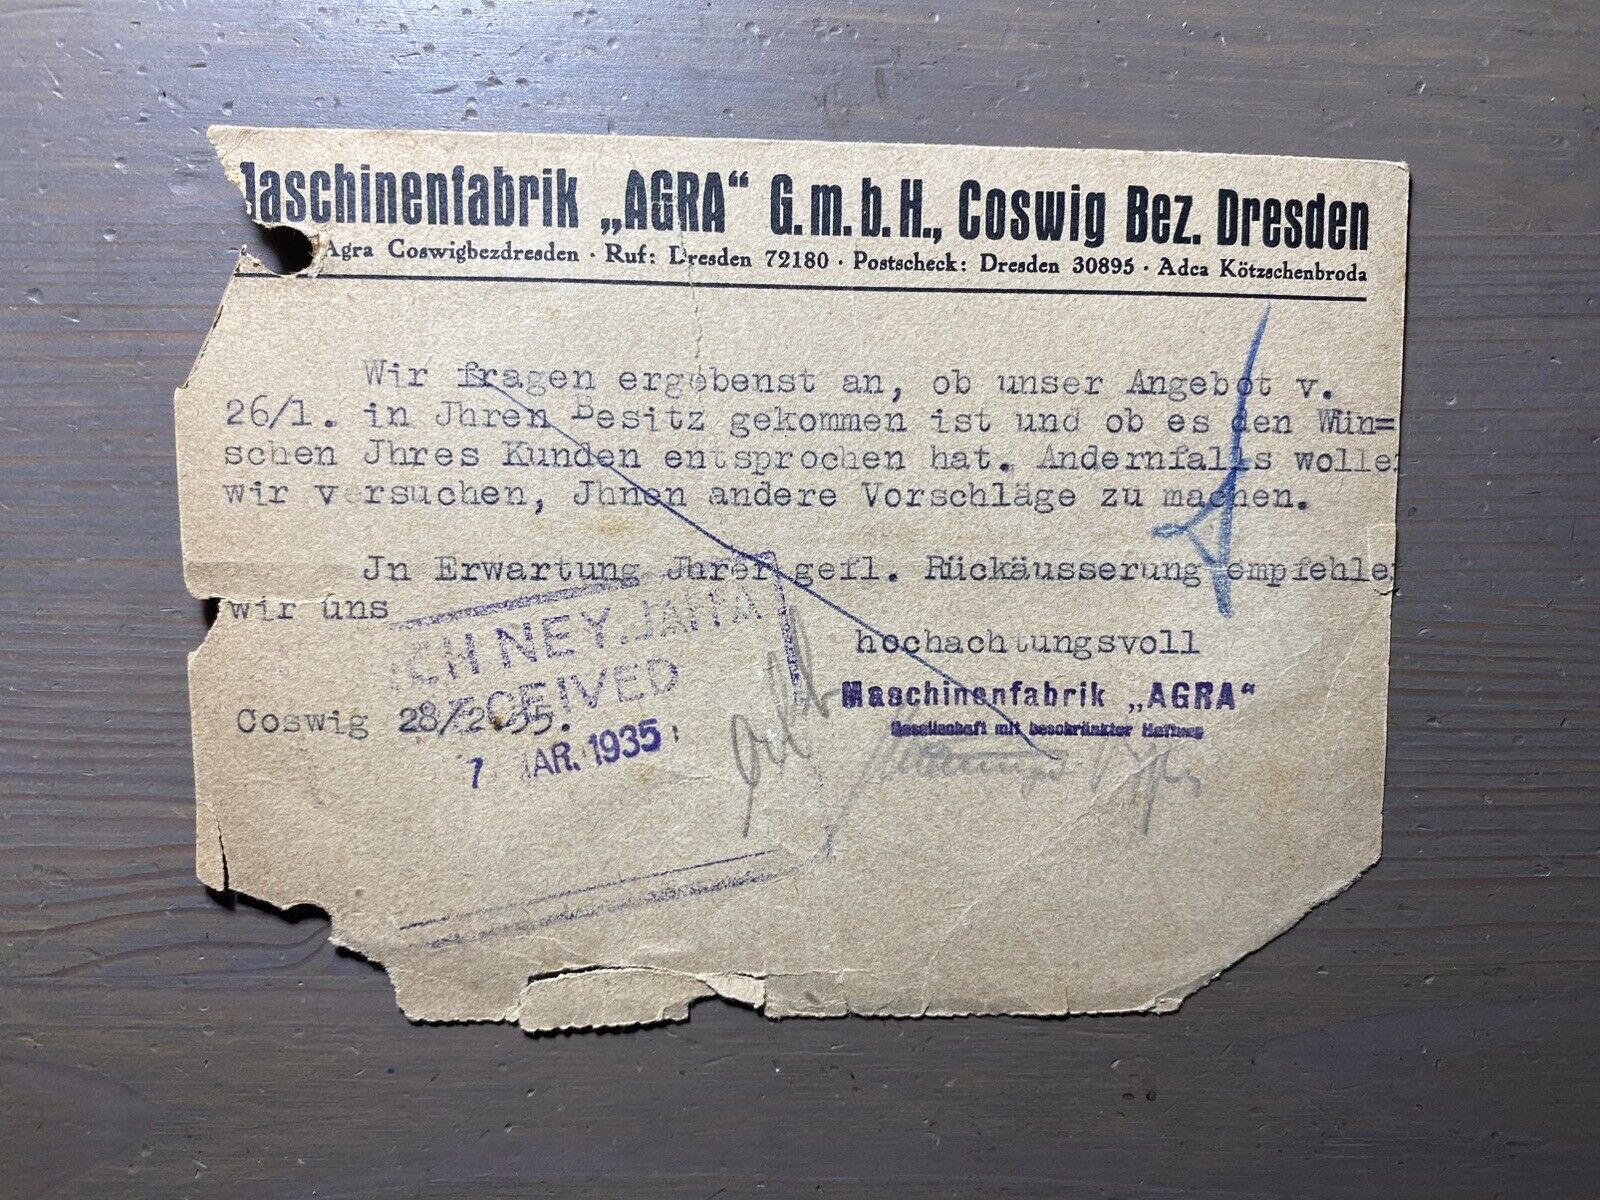 Maschinenfabrik „AGRA“ G.m.b.H., Coswig Bez. Dresden
Agra Coswigbezdresden · Ruf: Dresden 72180 · Postscheck: Dresden 30895 · Adca Kötzschenbroda
Wir fragen ergebenst an, ob unser Angebot v.
26/1. in Jhren Besitz gekommen ist und ob es den Wün=
schen Jhres Kunden entsprochen hat. Andernfalls wolle
wir versuchen, Jhnen andere Vorschläge zu machen.
Jn Erwartung Jhrer gefl. Rückäusserung empfehle
wir uns
hochachtungsvoll
ICH NEY. JAFFA
RECEIVED
7 MAR. 1935
Coswig 28/2.35.
Maschinenfabrik „AGRA“
Gesellschaft mit beschränkter Haftung